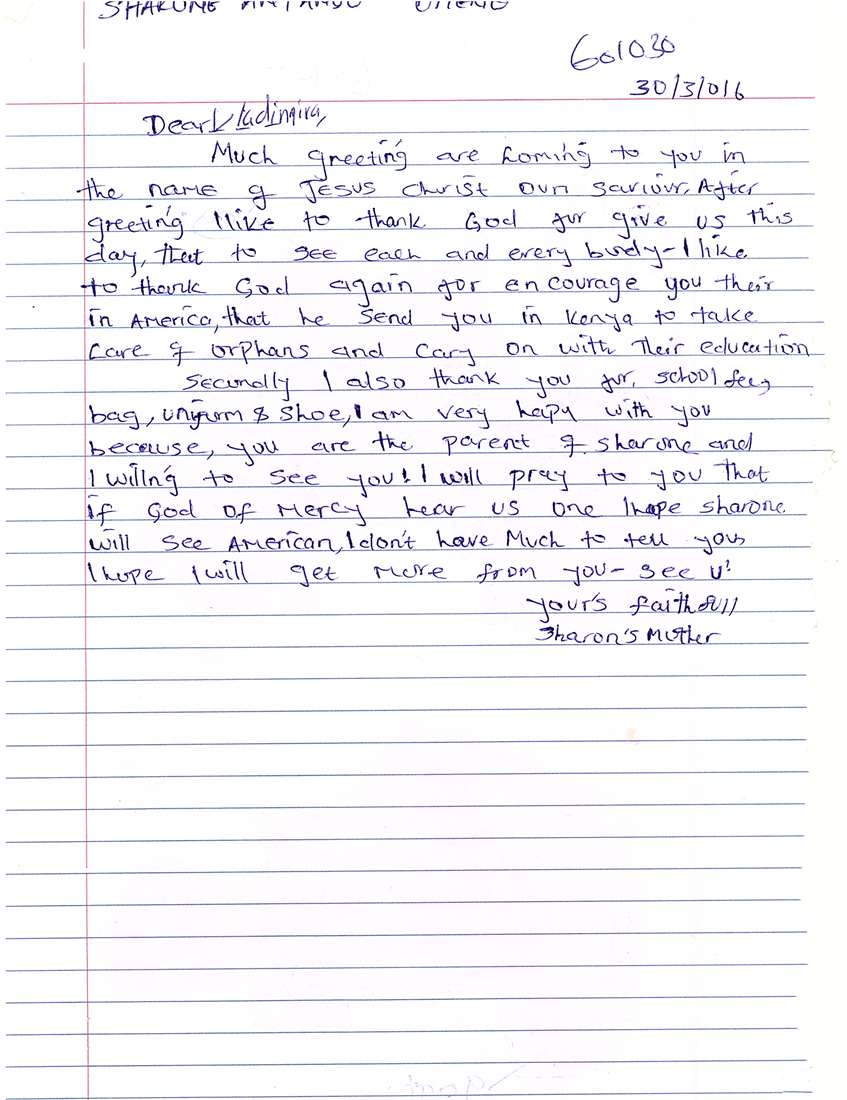 SHARONE
601030
30/3/016
Dear
Much greeting are Coming to you in
the name of JESUS Christ our saviour. After
greeting I like to thank God for give us this
day, that to see each and every body - I like
to thank God again for encourage you their
in America, that he send you in Kenya to take
Care of orphans and Cary on with their education
Secondly I also thank you for, school fee,
bag, uniform & shoe, I am very hapy with you
because, you are the parent of sharone and
I willing to see you! I will pray to you that
if God of Mercy hear us one I hope sharone
will see American, I don't have Much to tell you
I hope I will get More from you - see u!
your's faithfull
Sharon's Mother